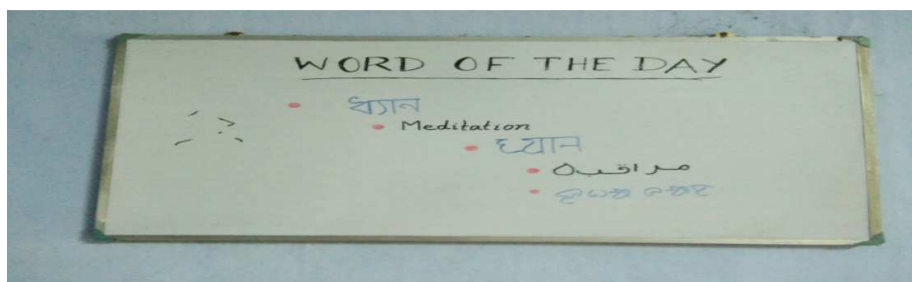 WORD OF THE DAY
ধ্যান
Meditation
ध्यान
مراقبہ